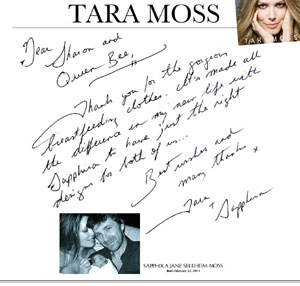 TARA MOSS
TARA MOSS
Dear Sharon and
Queen Bee,
Thank you for the gorgeous
breastfeeding clothes. It's made all
the difference in my new life with
Sapphira to have just the right
designs for both of us...
Best wishes and
many thanks x
Tara
+ Sapphira
SAPPHIRA JANE SELLHEIM-MOSS
Born February 22, 2011